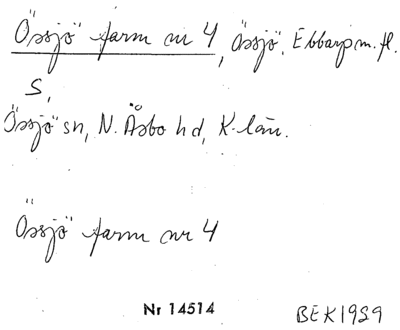 Össjö farm nr 4, Össjö, Ebbarp m. fl.
S,
Össjö sn, N. Åsbo hd, K. län.
Össjö farm nr 4
Nr 14514
BEK1989